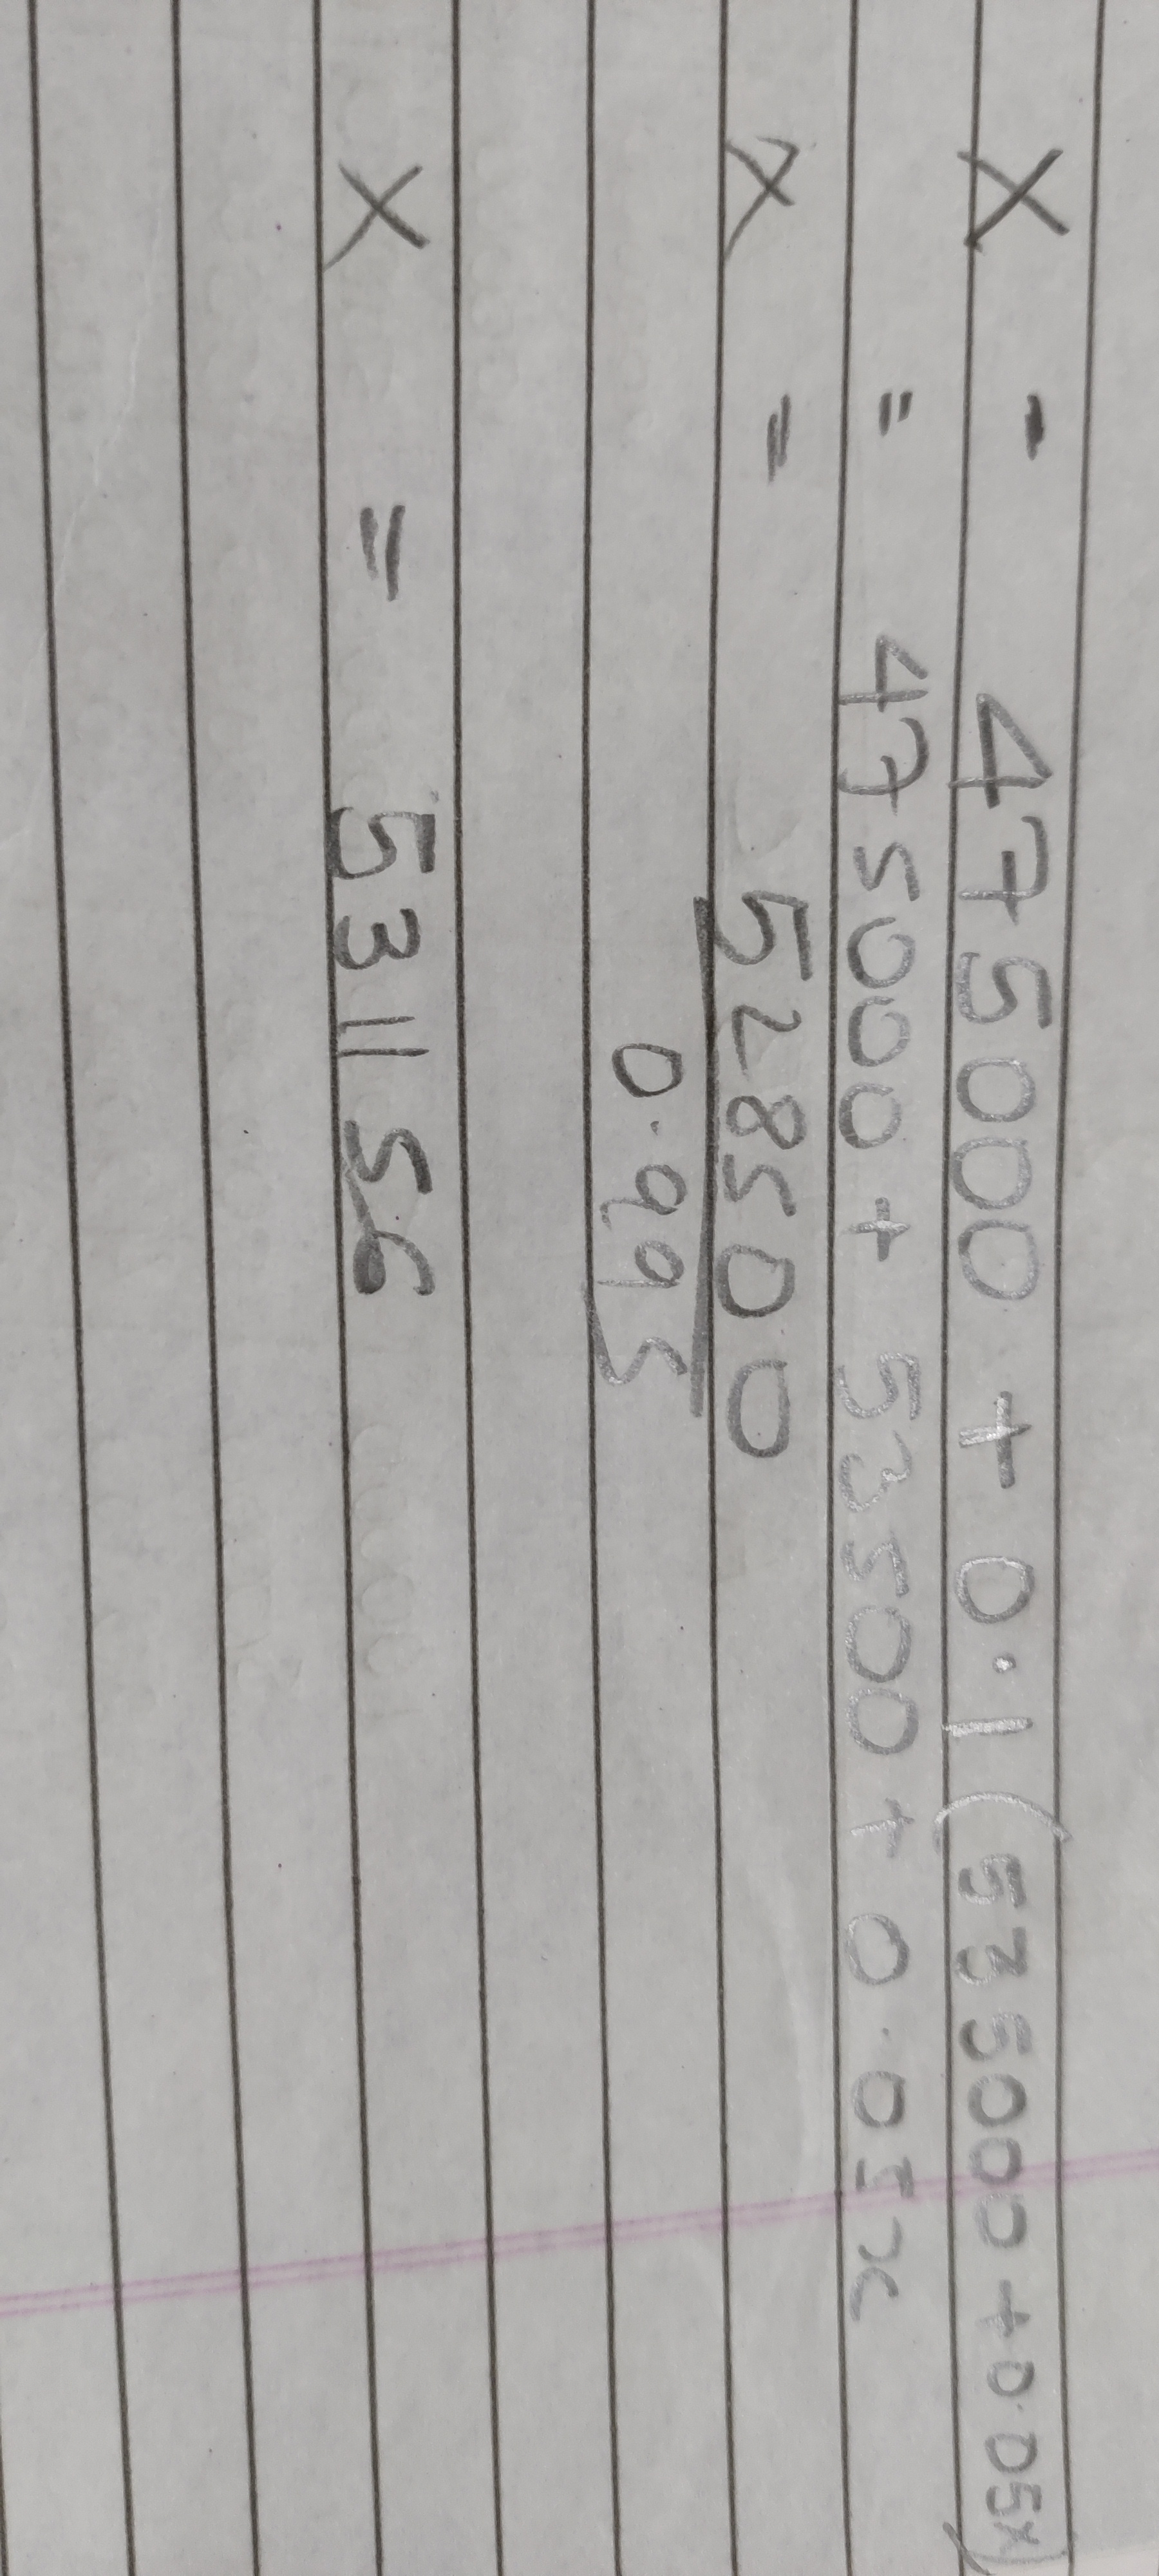 X - 475000 + 0.1 (535000 + 0.05x)
= 475000 + 53500 + 0.05x
x = 528500
0.995
X = 531156